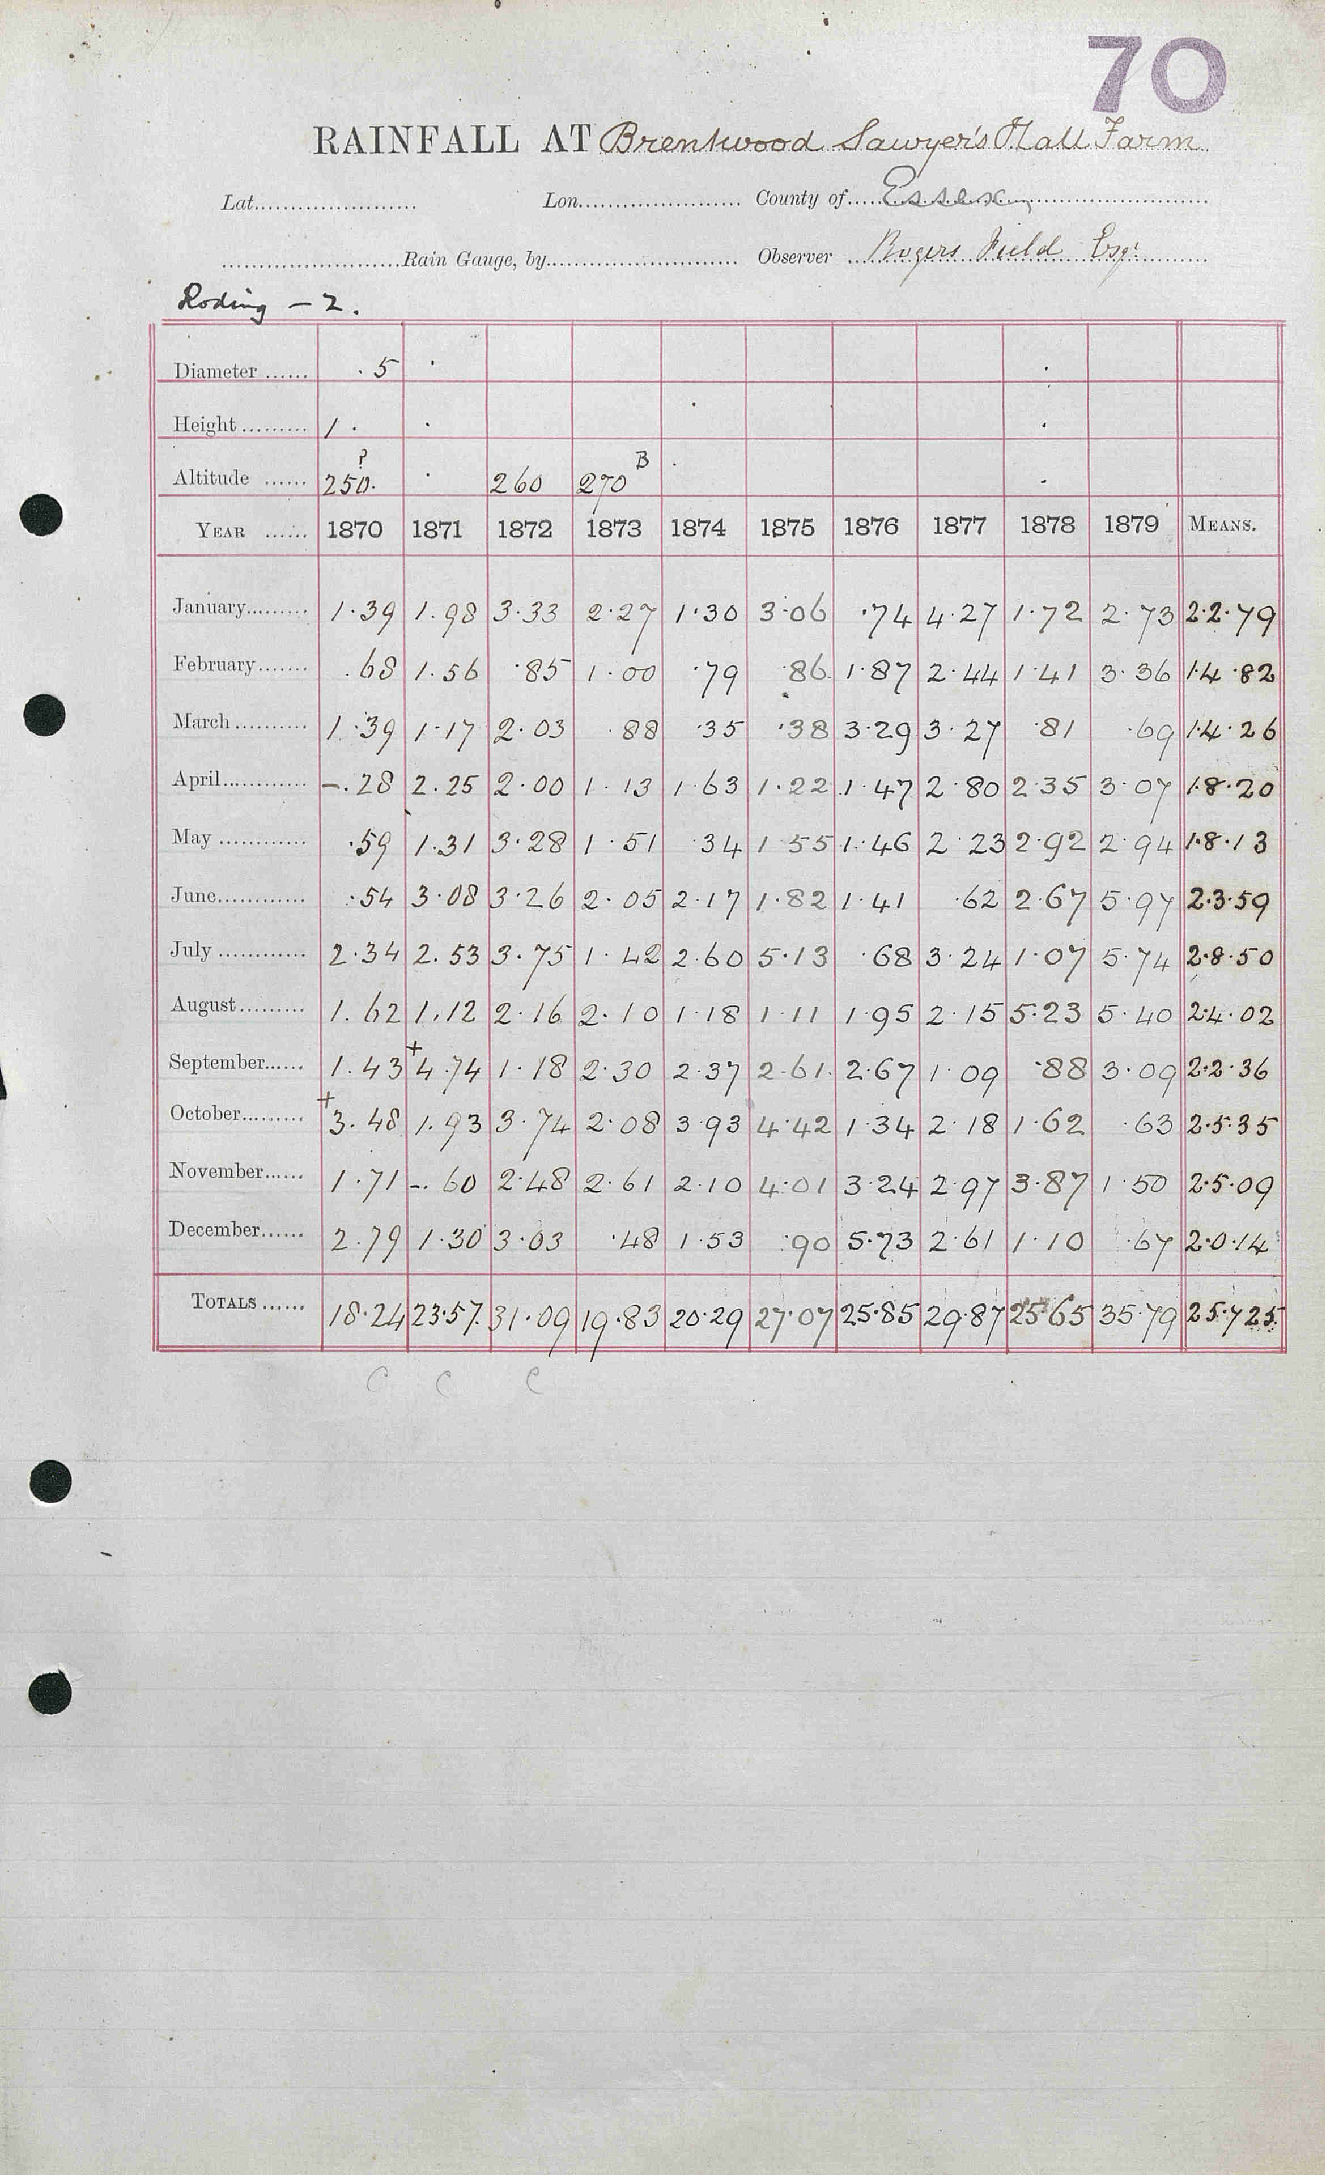 70
RAINFALL AT Brentwood Sawyer's Hall Farm
Lat. Lon. County of Essex
Rain Gauge, by Observer Rogers Field Esqr
Roding - 2.
Diameter ...... .5
Height ......... 1.
Altitude ...... 250. ? 260 270 B
YEAR ...... 1870 1871 1872 1873 1874 1875 1876 1877 1878 1879 MEANS.
January......... 1.39 1.98 3.33 2.27 1.30 3.06 .74 4.27 1.72 2.73 2.2.79
February....... .68 1.56 .85 1.00 .79 .86 1.87 2.44 1.41 3.36 1.4.82
March.......... 1.39 1.17 2.03 .88 .35 .38 3.29 3.27 .81 .69 1.4.26
April............ -.28 2.25 2.00 1.13 1.63 1.22 1.47 2.80 2.35 3.07 1.8.20
May ............ .59 1.31 3.28 1.51 .34 1.55 1.46 2.23 2.92 2.94 1.8.13
June............ .54 3.08 3.26 2.05 2.17 1.82 1.41 .62 2.67 5.97 2.3.59
July ............ 2.34 2.53 3.75 1.42 2.60 5.13 .68 3.24 1.07 5.74 2.8.50
August......... 1.62 1.12 2.16 2.10 1.18 1.11 1.95 2.15 5.23 5.40 2.4.02
September...... 1.43 +4.74 1.18 2.30 2.37 2.61 2.67 1.09 .88 3.09 2.2.36
October......... +3.48 1.93 3.74 2.08 3.93 4.42 1.34 2.18 1.62 .63 2.5.35
November...... 1.71 -.60 2.48 2.61 2.10 4.01 3.24 2.97 3.87 1.50 2.5.09
December...... 2.79 1.30 3.03 .48 1.53 .90 5.73 2.61 1.10 .67 2.0.14
TOTALS ...... 18.24 23.57 31.09 19.83 20.29 27.07 25.85 29.87 25.65 35.79 25.725
C C C